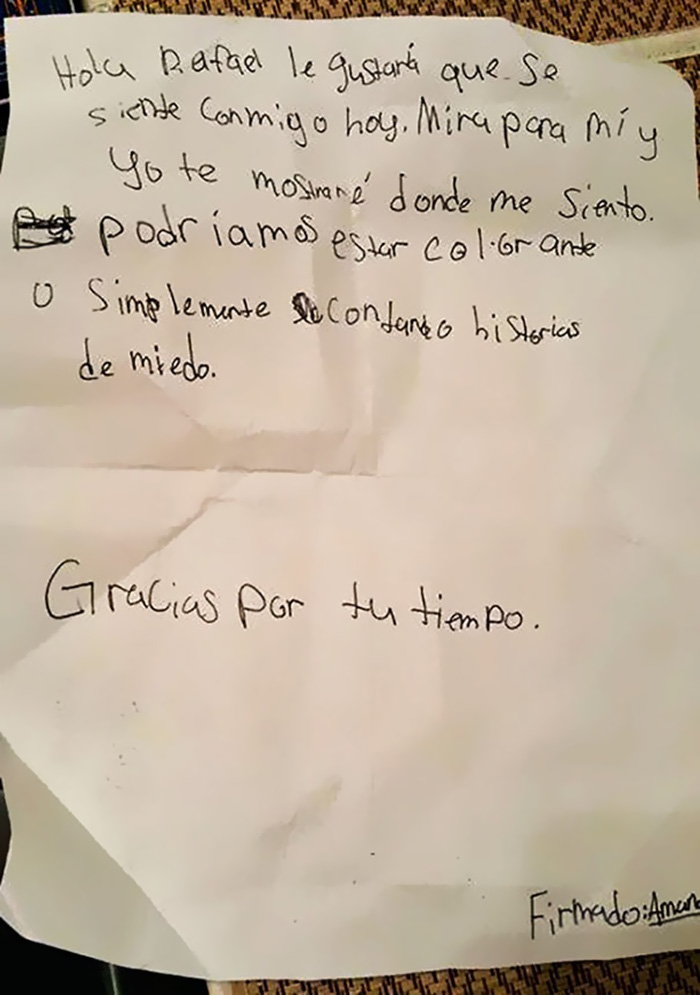 Hola Rafael le gustará que se
siente conmigo hoy. Mira para mí y
Yo te mostraré donde me siento.
podriamos estar col.Grante
o simplemente contando historias
de miedo.
Gracias por tu tiempo.
Firmado: Aman